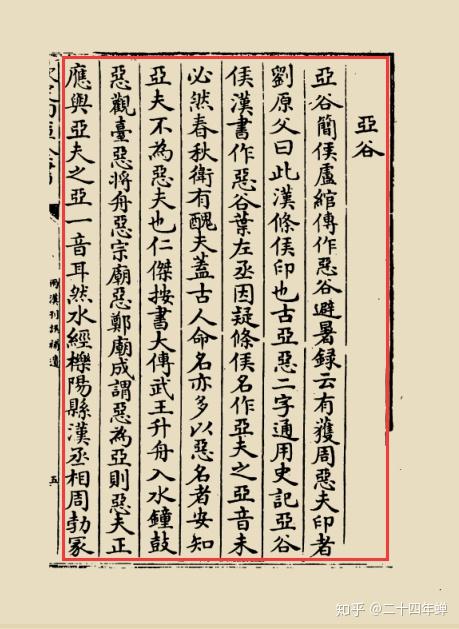 亞谷
亞谷簡侯盧綰傳作惡谷避暑録云有獲周惡夫印者
劉原父曰此漢條侯印也古亞惡二字通用史記亞谷
侯漢書作惡谷葉左丞因疑條侯名作亞夫之亞音未
必然春秋衛有醜夫蓋古人命名亦多以惡名者安知
亞夫不為惡夫也仁傑按書大傳武王升舟入水鐘鼓
惡觀臺惡將舟惡宗廟惡鄭廟成謂惡為亞則惡夫正
應與亞夫之亞一音耳然水經櫟陽縣漢丞相周勃冢
兩漢刊誤補遺
五
知乎 @二十四年蝉